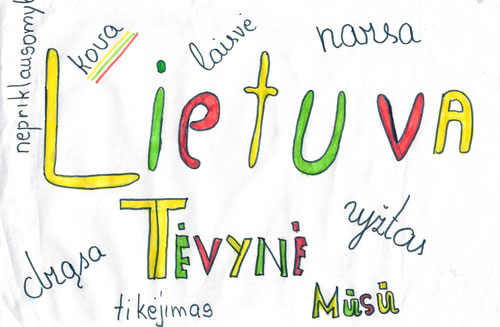 nepriklausomyb
kova laisvė narsa
Lietuva
Tėvynė
drąsa ryžtas
tikėjimas Mūsū